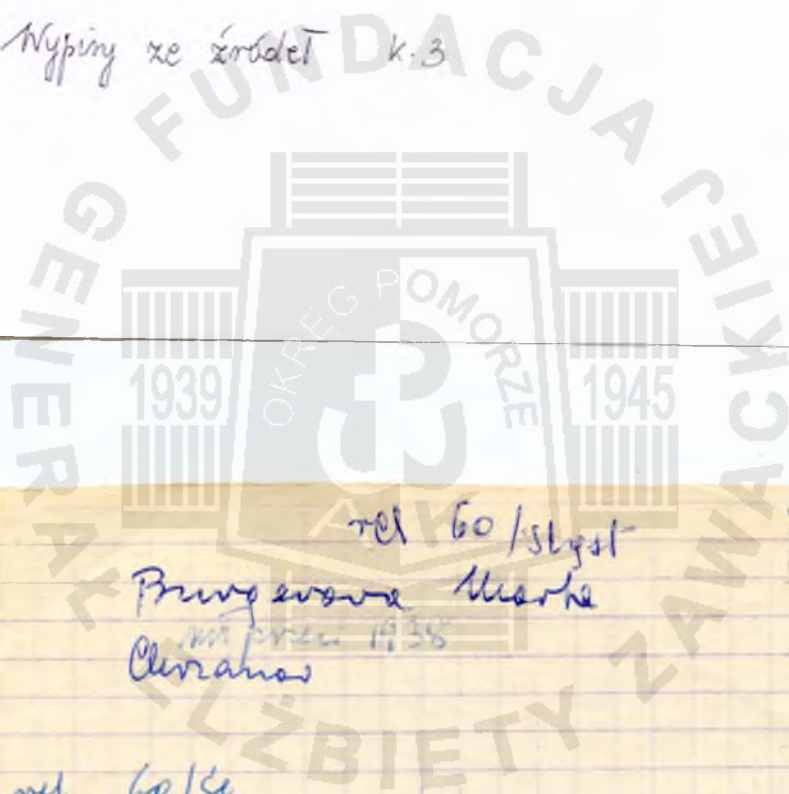 Wypisy ze źródeł k.3
FUNDACJA GENERAŁ ELŻBIETY ZAWACKIEJ
OKRĘG POMORZE
1939
1945
AK
rel 60/Sląst
Burgerowa Marta
1938
Chrzanów
rel. 60/Śl